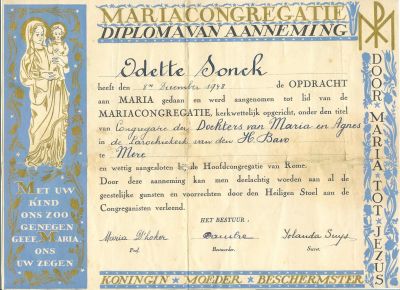 MARIACONGREGATIE
DIPLOMA VAN AANNEMING
Odette Sonck
heeft den 8en December 1948 de OPDRACHT
aan MARIA gedaan en werd aangenomen tot lid van de
MARIACONGREGATIE, kerkwettelijk opgericht, onder den titel
van Congregatie der Dochters van Maria en Agnes
in de Parochiekerk van den H. Bavo
te Mere
en wettig aangesloten bij de Hoofdcongregatie van Rome.
Door deze aanneming kan men deelachtig worden aan al de
geestelijke gunsten en voorrechten door den Heiligen Stoel aan de
Congreganisten verleend.
HET BESTUUR :
Maria D'hoker
Yolanda Suys
Pref.
Bestuurder.
Secret.
MET UW
KIND
ONS ZOO
GENEGEN
GEEF, MARIA,
ONS
UW ZEGEN
DOOR MARIA TOT JEZUS
KONINGIN MOEDER BESCHERMSTER